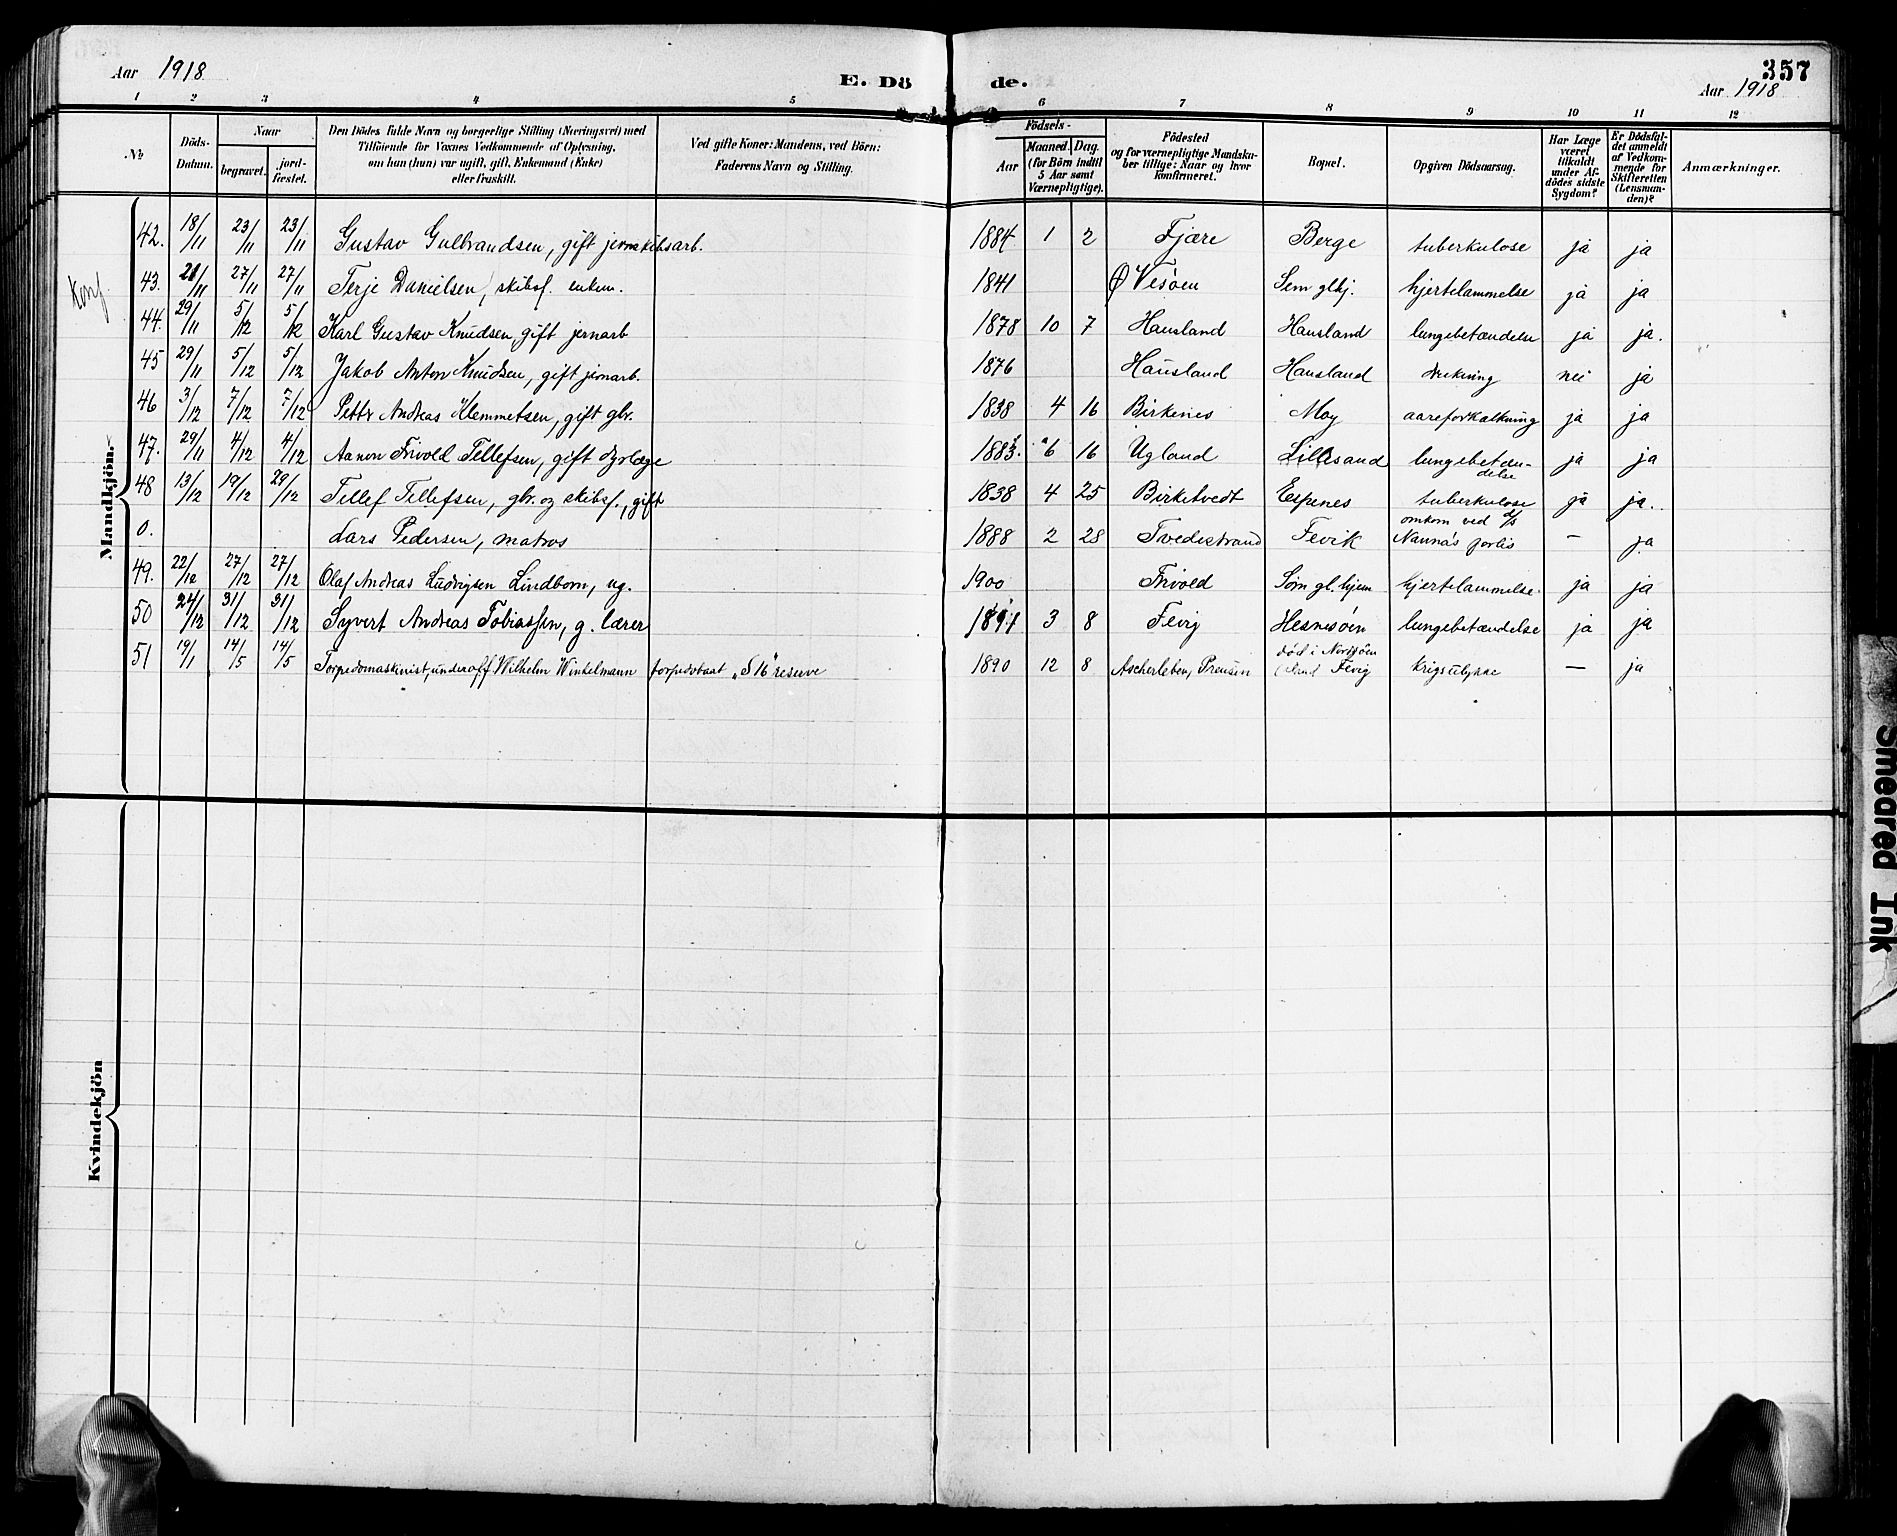 357
Aar 1918
E. Dö de.
Aar 1918
1 2 3 4 5 6 7 8 9 10 11 12
No.
Döds-Datum.
Naar
begravet.
jord-fæstet.
Den Dödes fulde Navn og borgerlige Stilling (Næringsvei) med
Tilföiende for Voxnes Vedkommende af Oplysning,
om han (hun) var ugift, gift, Enkemand (Enke)
eller fraskilt.
Ved gifte Koner: Mandens, ved Börn:
Faderens Navn og Stilling.
Födsels-
Aar
Maaned. Dag.
(for Börn indtil
5 Aar samt
Værnepligtige).
Födested
og for værnepligtige Mandska-
ber tillige: Naar og hvor
konfirmeret.
Bopæl.
Opgiven Dödsaarsag.
Har Læge
været
tilkaldt
under Af-
dödes sidste
Sygdom?
Er Dödsfal-
det anmeldt
af Vedkom-
mende for
Skifteretten
(Lensman-
den)?
Anmærkninger.
Mandkjön.
42. 18/11 23/11 23/11 Gustav Gulbrandsen, gift jernskibsarb. 1884 1 2 Fjære Berge tuberkulose ja ja
Konf.
43. 21/11 27/11 27/11 Terje Danielsen, skibsf. enkem. 1841 Ø Vesøen Sem glhj. hjertelammelse ja ja
44. 29/11 5/12 5/12 Karl Gustav Knudsen, gift jernarb 1878 10 7 Hausland Hausland lungebetændelse ja ja.
45 29/11 5/12 5/12 Jakob Anton Knudsen, gift jernarb. 1876 Hausland Hausland drukning nei ja
46 3/12 7/12 7/12 Petter Andreas Klemmetsen, gift gbr. 1838 4 16 Birkenes Moy aareforkalkning ja ja
47. 29/11 4/12 4/12 Aanon Frivold Tellefsen, gift dyrlæge 1883. 6 16 Ugland Lillesand lungebetæn-
delse ja ja
48 13/12 19/12 29/12 Tellef Tellefsen, gbr. og skibsf., gift 1838 4 25 Birketvedt Espenes tuberkulose ja ja.
0. Lars Pedersen, matros 1888 2 28 Tvedestrand Fevik omkom ved d/s
Nanna's forlis — ja
49. 22/12 27/12 27/12 Olaf Andreas Ludvigsen Lindborn, ug. 1900 Frivold Søm gl. hjem hjertelammelse. ja ja
50 24/12 31/12 31/12 Syvert Andreas Tobiassen, g. lærer 3 8 Fevig Hesnesøen lungebetændelse ja ja
51 19/1 14/5 14/5 Torpedomaskinist, underoff Wilhelm Winkelmann torpedobaat „S 16" reserve 1890 12 8 Ascherleben, Preusen død i Nordsjøen
Fevig krigsulykke — ja
Kvindekjön
Smeared Ink